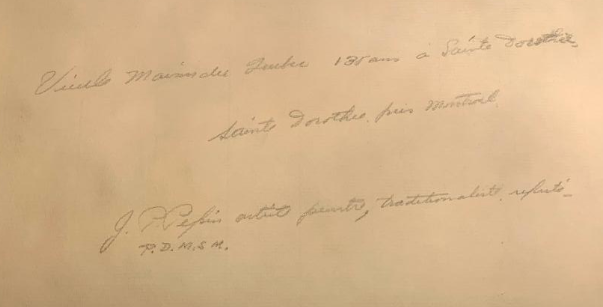 Vieille Maison du Quebec 135 ans à Sainte Dorothée,
Sainte Dorothée près Montréal.
J. P. Pepin artiste peintre, traditionaliste, réputé
P. D. M. S. M.